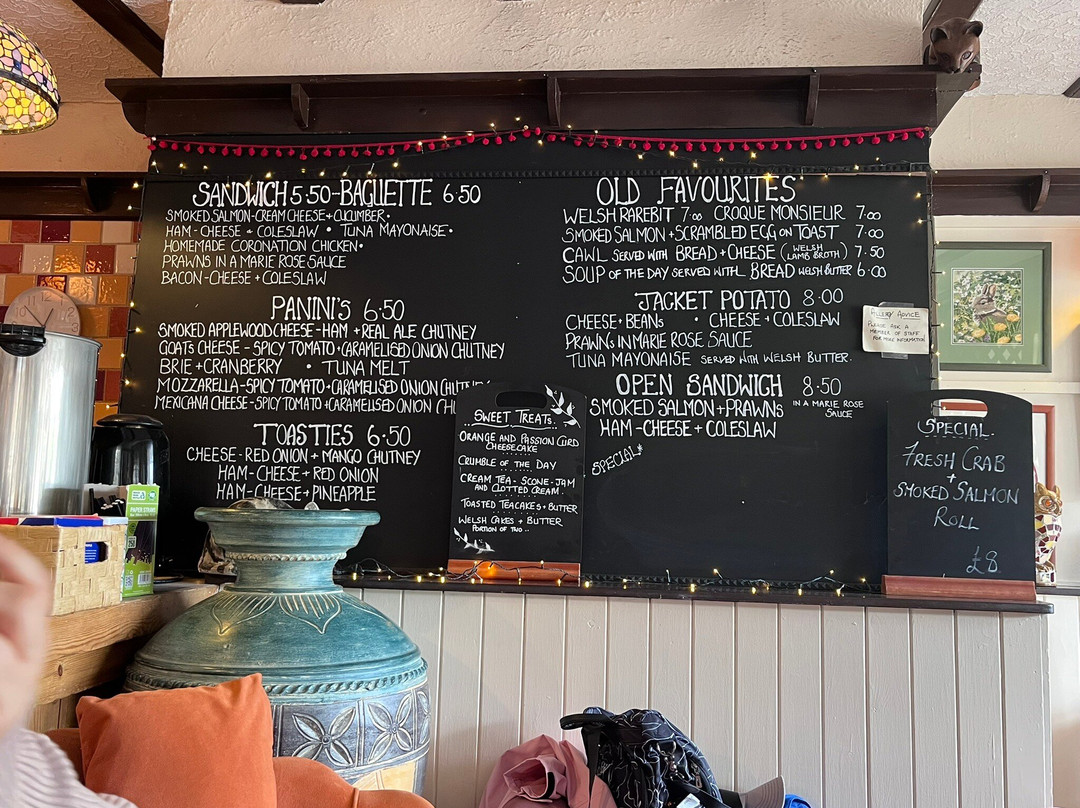 SANDWICH 5·50-BAGUETTE 6·50
SMOKED SALMON-CREAM CHEESE+CUCUMBER·
HAM-CHEESE + COLESLAW · TUNA MAYONAISE·
HOMEMADE CORONATION CHICKEN·
PRAWNS IN A MARIE ROSE SAUCE
BACON-CHEESE + COLESLAW
PANINI'S 6·50
SMOKED APPLEWOOD CHEESE-HAM + REAL ALE CHUTNEY
GOATS CHEESE - SPICY TOMATO+CARAMELISED ONION CHUTNEY
BRIE+CRANBERRY · TUNA MELT
MOZZARELLA-SPICY TOMATO+CARAMELISED ONION CHUTNEY
MEXICANA CHEESE-SPICY TOMATO+CARAMELISED ONION CHU
TOASTIES 6·50
CHEESE-RED ONION + MANGO CHUTNEY
HAM-CHEESE + RED ONION
HAM-CHEESE+PINEAPPLE
OLD FAVOURITES
WELSH RAREBIT 7·00 CROQUE MONSIEUR 7·00
SMOKED SALMON+SCRAMBLED EGG ON TOAST 7·00
CAWL SERVED WITH BREAD+CHEESE (WELSH LAMB BROTH) 7·50
SOUP OF THE DAY SERVED WITH BREAD WELSH BUTTER 6·00
JACKET POTATO 8·00
CHEESE+BEANS · CHEESE + COLESLAW
PRAWNS IN MARIE ROSE SAUCE
TUNA MAYONAISE SERVED WITH WELSH BUTTER.
OPEN SANDWICH 8·50
SMOKED SALMON+PRAWNS IN A MARIE ROSE
SAUCE
HAM-CHEESE + COLESLAW
SPECIAL*
ADVICE
PLEASE ASK A
MEMBER OF STAFF
FOR MORE INFORMATION
SWEET TREATS.
ORANGE AND PASSION CURD
CHEESECAKE
CRUMBLE OF THE DAY
CREAM TEA - SCONE - JAM
AND CLOTTED CREAM.
TOASTED TEACAKES + BUTTER
WELSH CAKES + BUTTER
PORTION OF TWO..
SPECIAL.
FRESH CRAB
+
SMOKED SALMON
ROLL
£8.
PAPER STRAWS